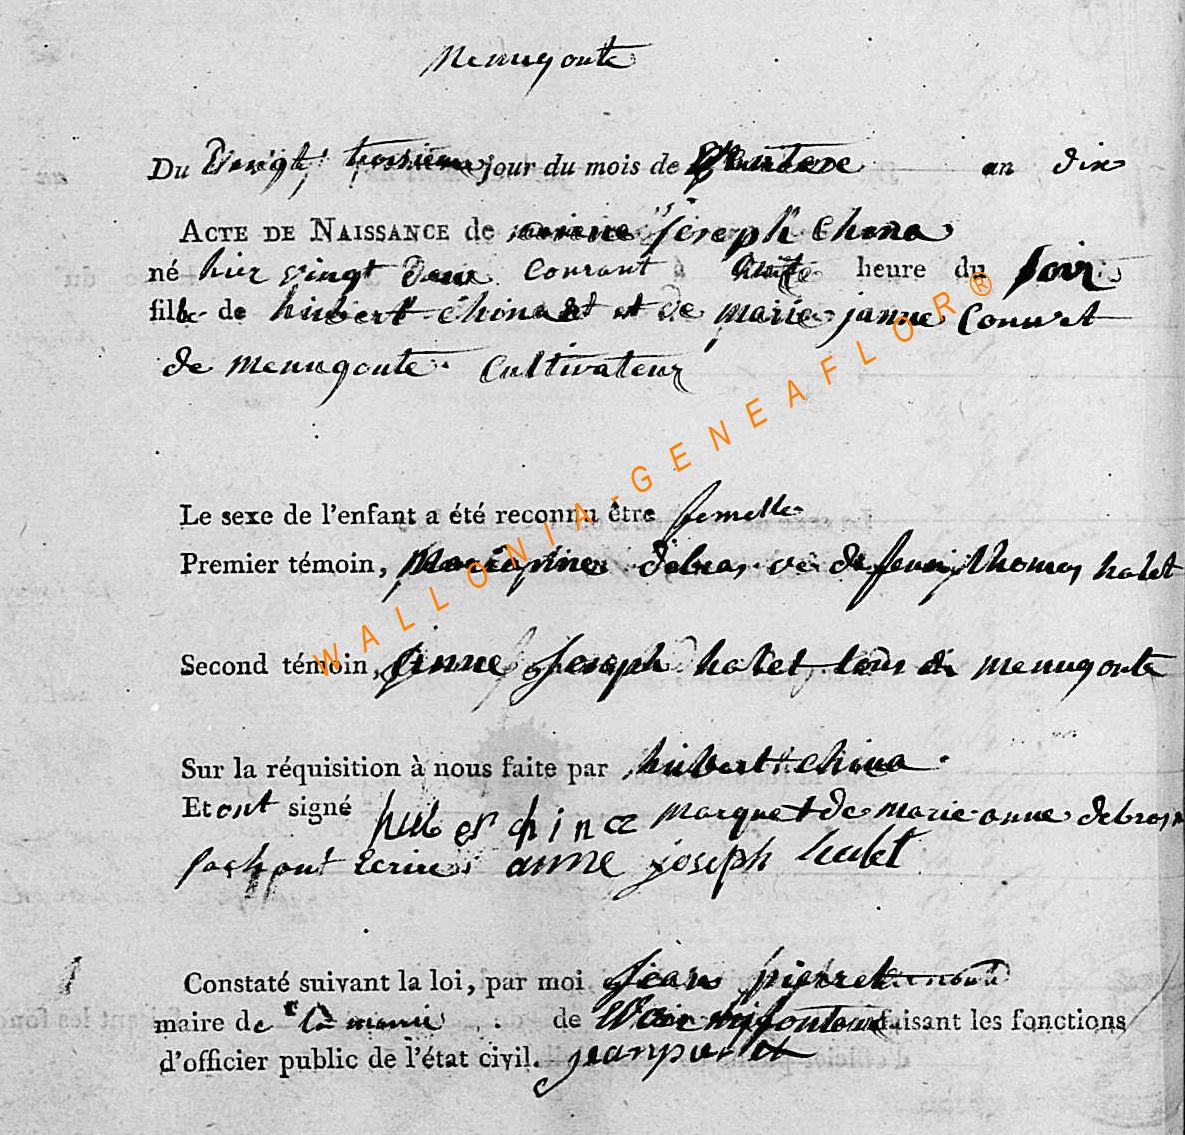 Menugoute
Du Vingt troisieme jour du mois de Ventose an dix
ACTE DE NAISSANCE de joseph China
né hier vingt deux courant à huite heure du soir
fille de hubert China et de marie janne Conuet
de menugoute Cultivateur
Le sexe de l'enfant a été reconnu être femelle
Premier témoin, debras ve de feu thomas halet
Second témoin, anne joseph halet tous de menugoute
Sur la réquisition à nous faite par hubert China
Et ont signé huber china marque de marie anne debras
ecrire anne joseph halet
Constaté suivant la loi, par moi jean pierret
maire de la mairie de faisant les fonctions
d'officier public de l'état civil. jean pierret
WALLONIA-GENEAFLOR®